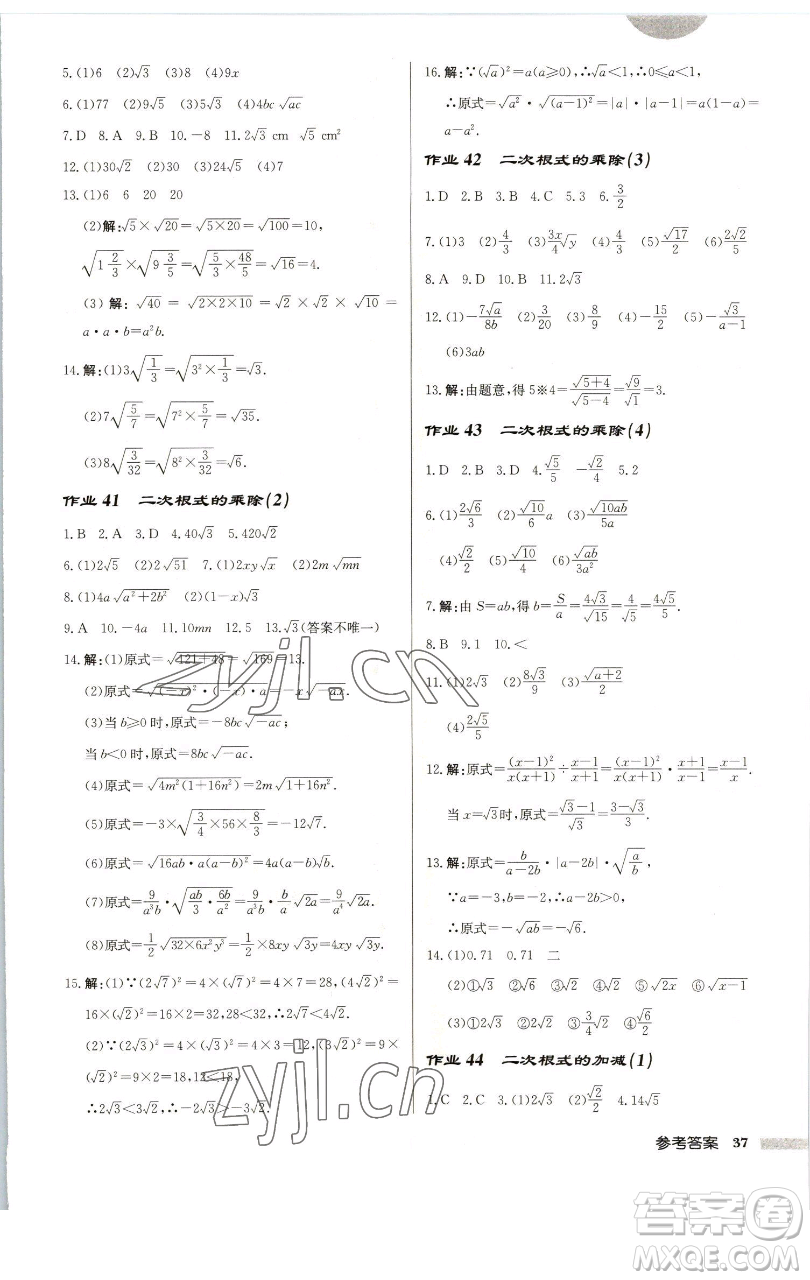 5.(1)6 (2)√3 (3)8 (4)9x
6.(1)77 (2)9√5 (3)5√3 (4)4bc√ac
7.D 8.A 9.B 10.-8 11.2√3 cm √5 cm²
12.(1)30√2 (2)30√3 (3)24√5 (4)6
13.(1)6 6 20 20
(2)解:√5×√20=√(5×20)=√100=10,
√(1 2/3)×√(9 3/5)=√(5/3×48/5)=√16=4.
(3)解:√40=√(2×2×10)=√2×√2×√10=
a·a·b=a²b.
14.解:(1)3√(1/3)=√(3²×1/3)=√3.
(2)7√(5/7)=√(7²×5/7)=√35.
(3)8√(3/32)=√(8²×3/32)=√6.
作业 41 二次根式的乘除(2)
1.B 2.A 3.D 4.40√3 5.420√2
6.(1)2√5 (2)2√51 7.(1)2xy√x (2)2m√mn
8.(1)4a√(a²+2b²) (2)(1-x)√3
9.A 10.-4a 11.10mn 12.5 13.√3(答案不唯一)
14.解:(1)原式=√(121+48)=√169=13.
(2)原式=√(-x)²·(-x)·a=-x√-ax.
(3)当b≥0时,原式=-8bc√-ac;
当b<0时,原式=8bc√-ac.
(4)原式=√(4m²(1+16n²))=2m√(1+16n²).
(5)原式=-3×√(3/4×56×8/3)=-12√7.
(6)原式=√(16ab·a(a-b)²)=4a(a-b)√b.
(7)原式=9/(a³b)·√(ab/3·6b/a²)=9/(a³b)·b/a√2a=9/a⁴√2a.
(8)原式=1/2√(32×6x²y³)=1/2×8xy√3y=4xy√3y.
15.解:(1)∵(2√7)²=4×(√7)²=4×7=28,(4√2)²=
16×(√2)²=16×2=32,28<32,∴2√7<4√2.
(2)∵(2√3)²=4×(√3)²=4×3=12,(3√2)²=9×
(√2)²=9×2=18,12<18,
∴2√3<3√2,∴-2√3>-3√2.
16.解:∵(√a)²=a(a≥0),∴√a<1,∴0≤a<1,
∴原式=√a²·√(a-1)²=|a|·|a-1|=a(1-a)=
a-a².
作业 42 二次根式的乘除(3)
1.D 2.B 3.B 4.C 5.3 6.3/2
7.(1)3 (2)4/3 (3)3x/4√y (4)4 (5)√17/2 (6)2√2/5
8.A 9.D 10.B 11.2√3
12.(1)-7√a/8b (2)3/20 (3)8/9 (4)-15/2 (5)-√3/(a-1)
(6)3ab
13.解:由题意,得5※4=√(5+4)/√(5-4)=√9/√1=3.
作业 43 二次根式的乘除(4)
1.D 2.D 3.D 4.√5/5 -√2/4 5.2
6.(1)2√6/3 (2)√10/6 a (3)√10ab/5a
(4)√2/2 (5)√10/4 (6)√ab/3a²
7.解:由S=ab,得b=S/a=4√3/√15=4/√5=4√5/5.
8.B 9.1 10.<
11.(1)2√3 (2)8√3/9 (3)√(a+2)/2
(4)2√5/5
12.解:原式=(x-1)²/x(x+1)÷(x-1)/(x+1)=(x-1)²/x(x+1)·(x+1)/(x-1)=(x-1)/x.
当x=√3时,原式=(√3-1)/√3=(3-√3)/3.
13.解:原式=b/(a-2b)·|a-2b|·√(a/b),
∵a=-3,b=-2,∴a-2b>0,
∴原式=-√ab=-√6.
14.(1)0.71 0.71 二
(2)①√3 ②√6 ③√2 ④√2 ⑤√2x ⑥√(x-1)
(3)①√3 ②√2 ③3/4√2 ④√2/2
作业 44 二次根式的加减(1)
1.C 2.C 3.(1)2√3 (2)√2/2 4.14√5
参考答案 37
zyjl.cn
zyjl.cn
答案卷
MXQE.COM